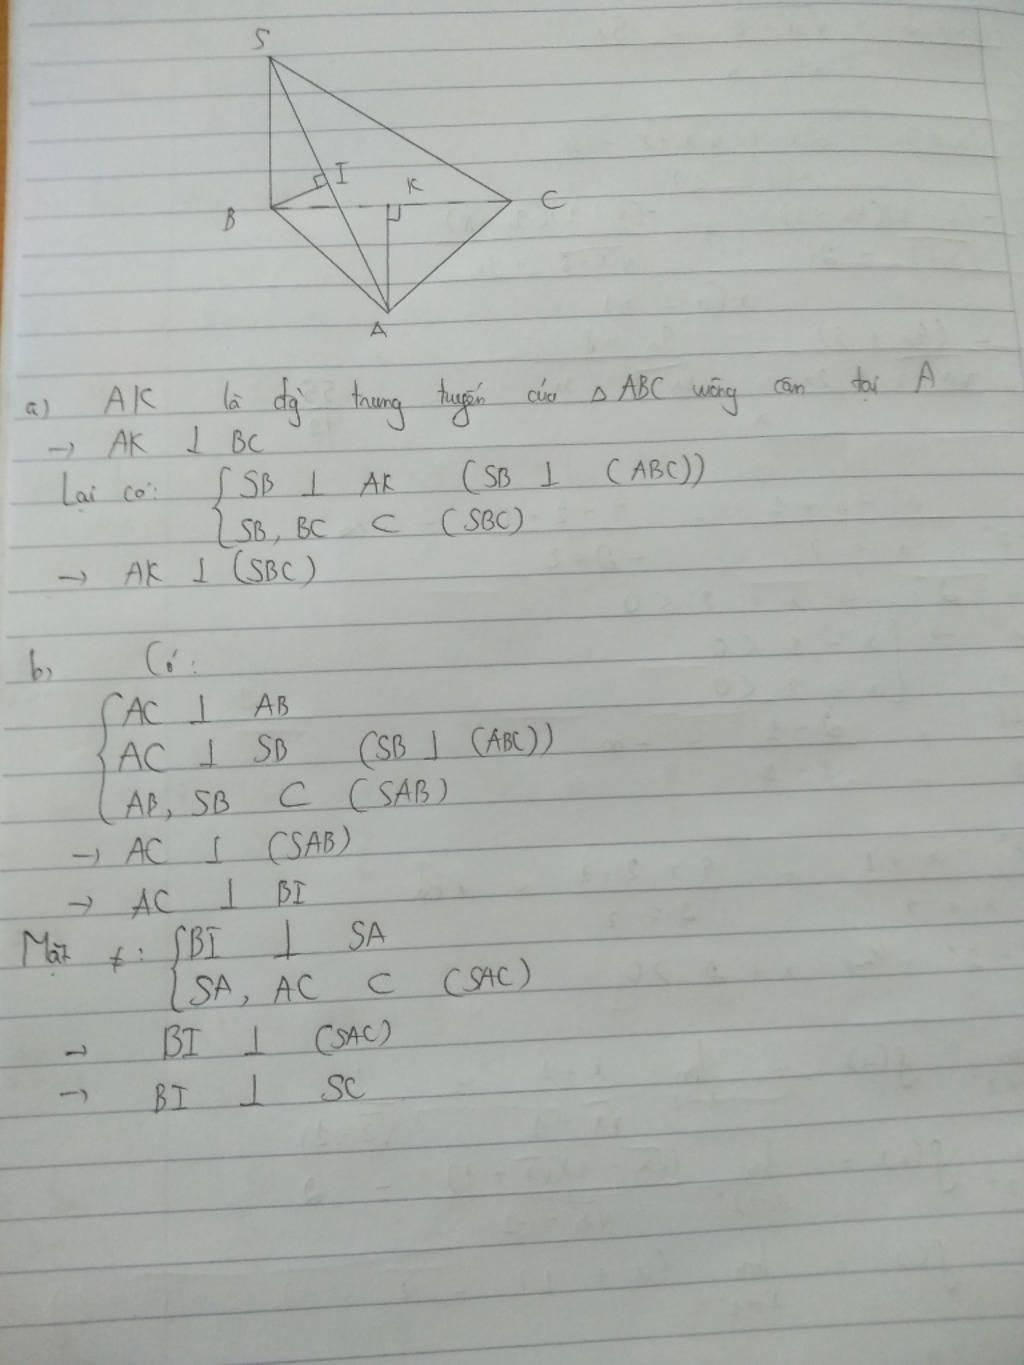 S
I
K
B
C
A
a) AK là đg trung tuyến của △ ABC vuông cân tại A
→ AK ⊥ BC
Lại có: { SB ⊥ AK (SB ⊥ (ABC))
SB, BC ⊂ (SBC)
→ AK ⊥ (SBC)
b, Có:
{ AC ⊥ AB
AC ⊥ SB (SB ⊥ (ABC))
AB, SB ⊂ (SAB)
→ AC ⊥ (SAB)
→ AC ⊥ BI
Mặt ≠: { BI ⊥ SA
SA, AC ⊂ (SAC)
→ BI ⊥ (SAC)
→ BI ⊥ SC